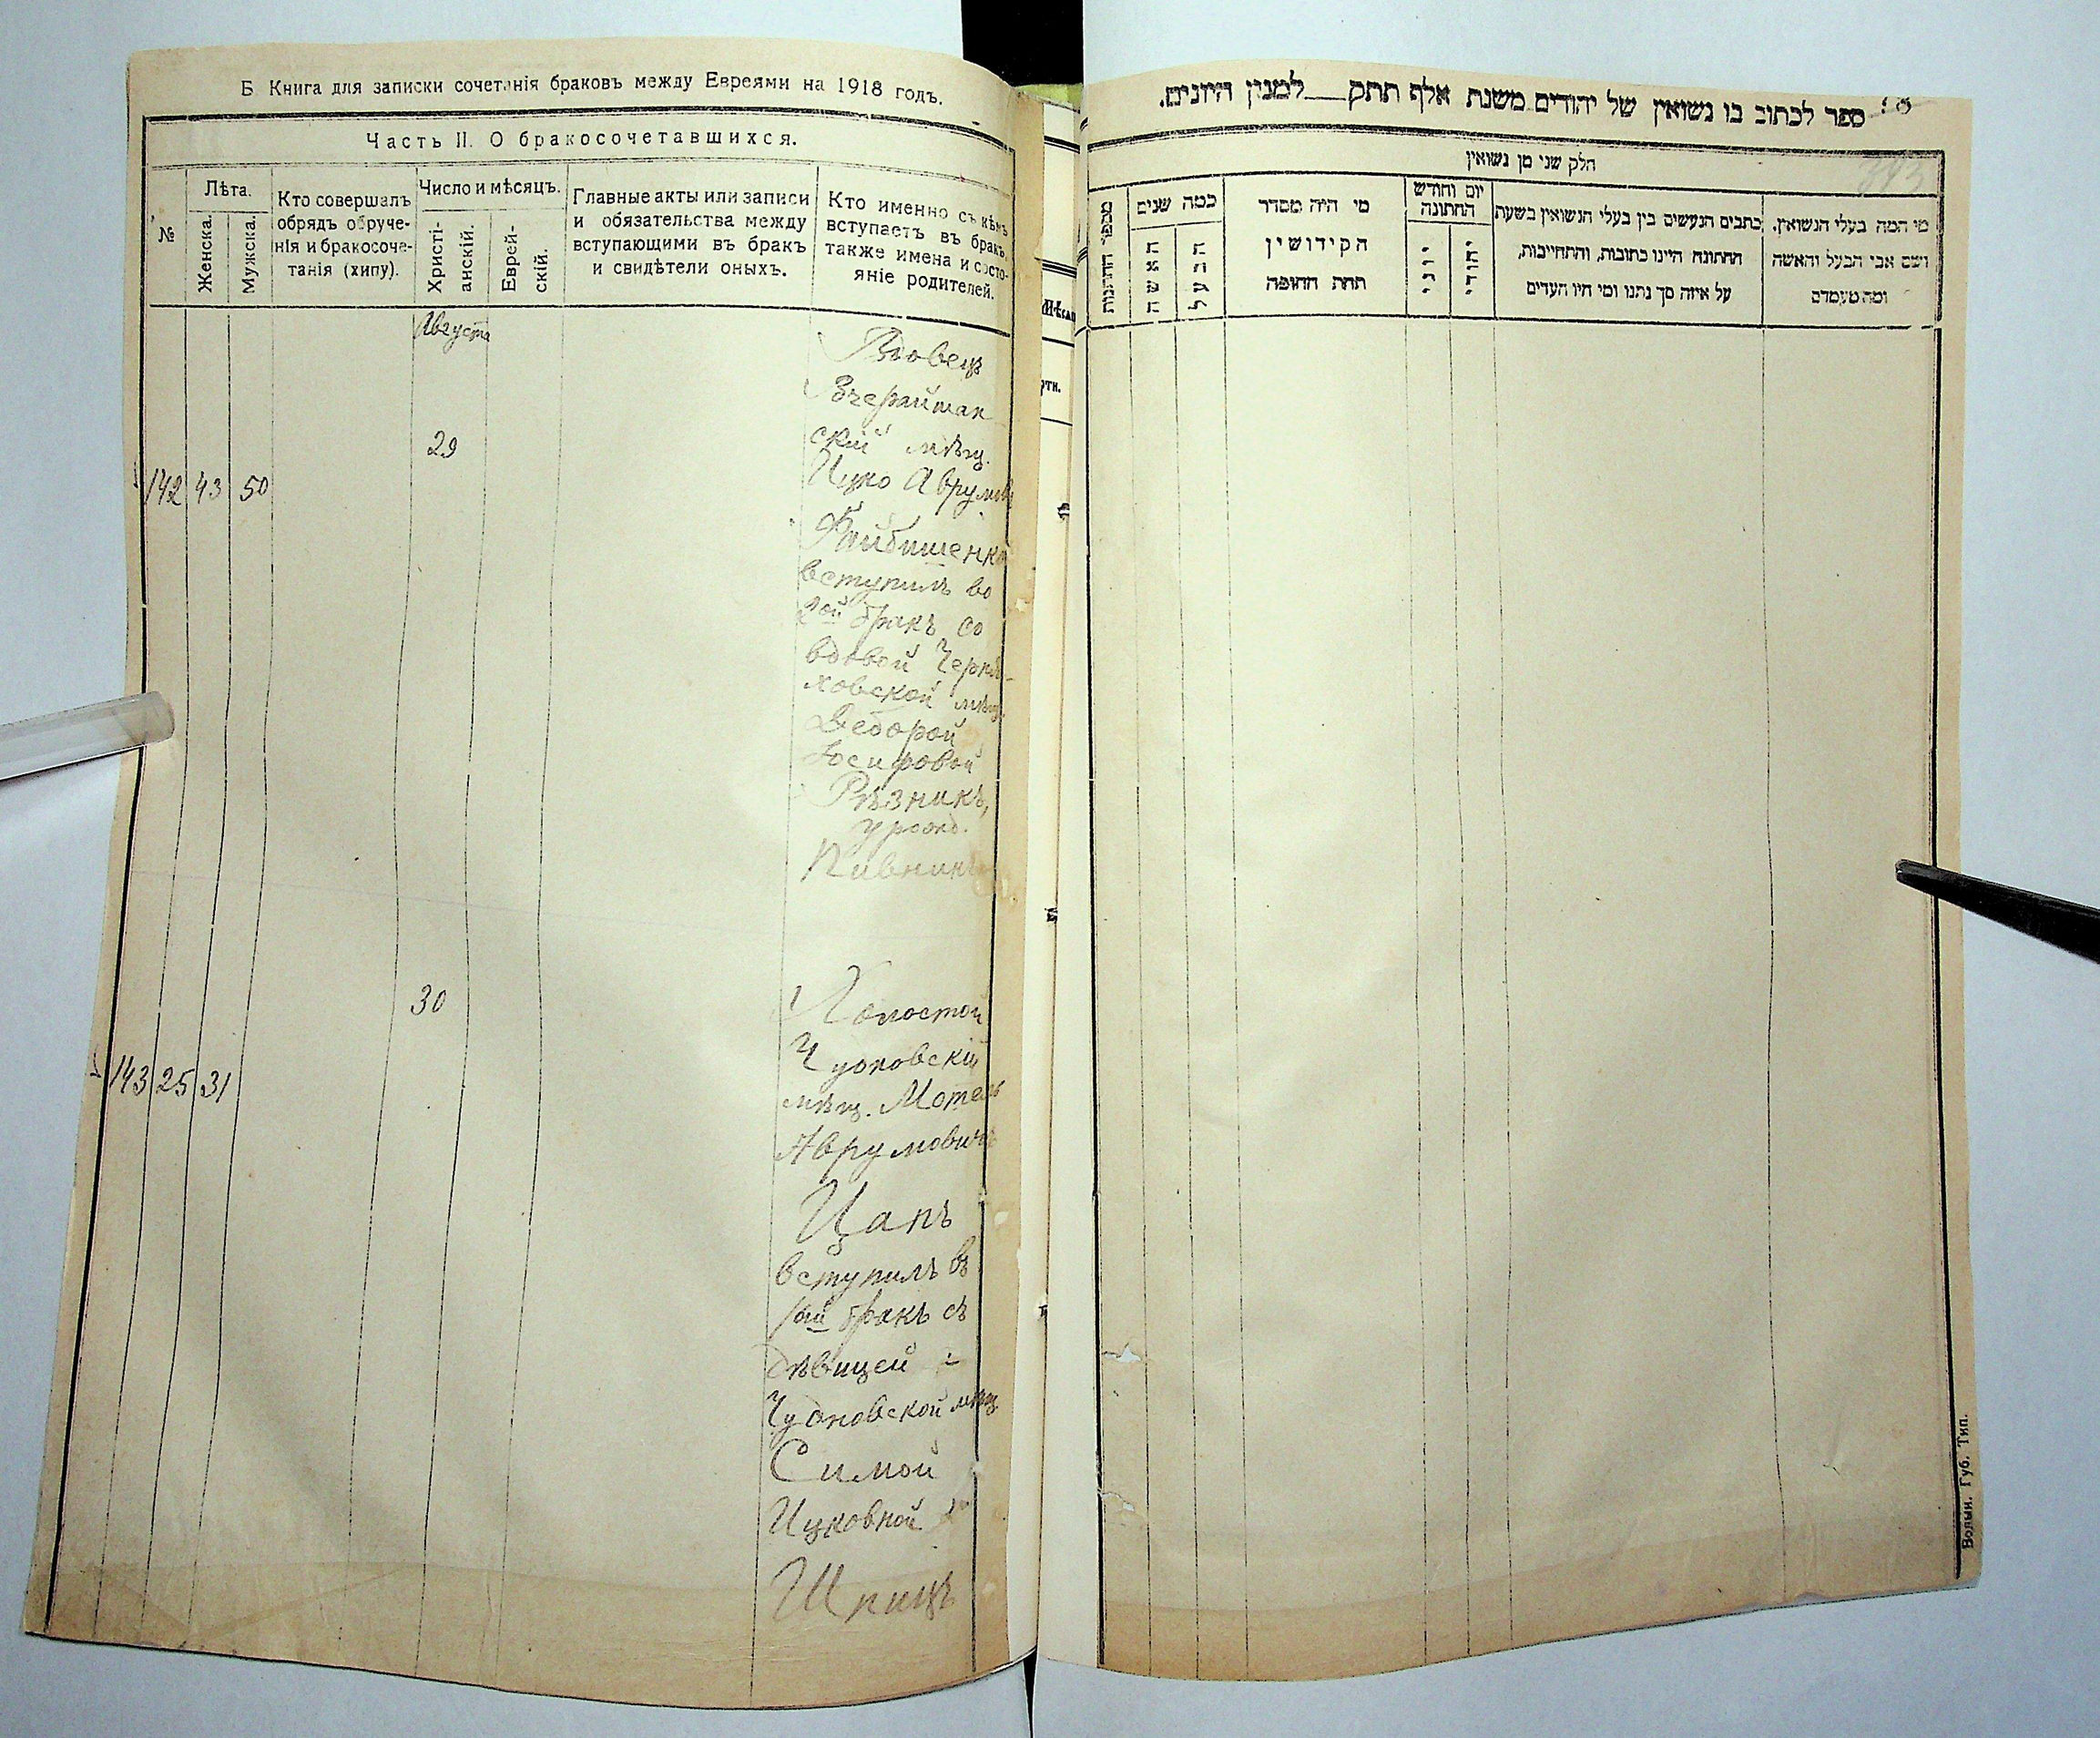 Б Книга для записки сочетанія браковъ между Евреями на 1918 годъ.
Часть II. О бракосочетавшихся.
№
Лѣта.
Женска.
Мужска.
Кто совершалъ
обрядъ обруче-
нія и бракосоче-
танія (хипу).
Число и мѣсяцъ.
Христі-
анскій.
Еврей-
скій.
Главные акты или записи
и обязательства между
вступающими въ бракъ
и свидѣтели оныхъ.
Кто именно съ кѣмъ
вступаетъ въ бракъ,
также имена и состо-
яніе родителей.
Августа
Вдовецъ
Вчерайшан
скій мѣщ.
29
142 43 50
Ицко Аврумов
Файбишенко
вступилъ во
2ой бракъ со
вдовой Черня-
ховской мѣщ.
Деборой
Іосифовой
Рѣзникъ,
урожд.
Пивникъ
30
Холостой
Чудновскій
143 25 31
мѣщ. Мотель
Аврумовичъ
Цапъ
вступилъ въ
1ый бракъ съ
дѣвицей
Чудновской мѣщ
Симой
Ицковной
Шпицъ
ספר לכתוב בו נשואין של יהודים משנת אלף תתק___למנין היונים.
חלק שני מן נשואין
מספר החתונות
כמה שנים
האשה
הבעל
מי היה מסדר
הקידושין
תחת החופה
יום וחודש
החתונה
יוני
יהודי
כתבים הנעשים בין בעלי הנשואין בשעת
החתונה היינו כתובות, והתחייבות,
על איזה סך נתנו ומי היו העדים
מי המה בעלי הנשואין,
ושם אבי הבעל והאשה
ומה מעמדם
Волын. Губ. Тип.